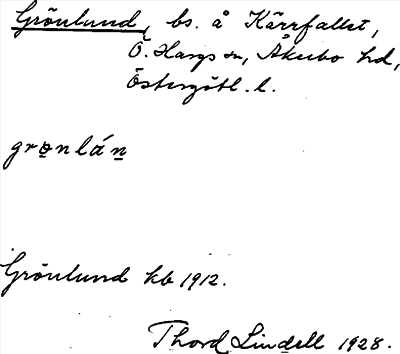 Grönlund, bs. å Kärrfallet,
Ö. Hargs sn, Åkerbo hd,
Östergötl. l.
gro̲nlán̲
Grönlund kb 1912.
Thord Lindell 1928.